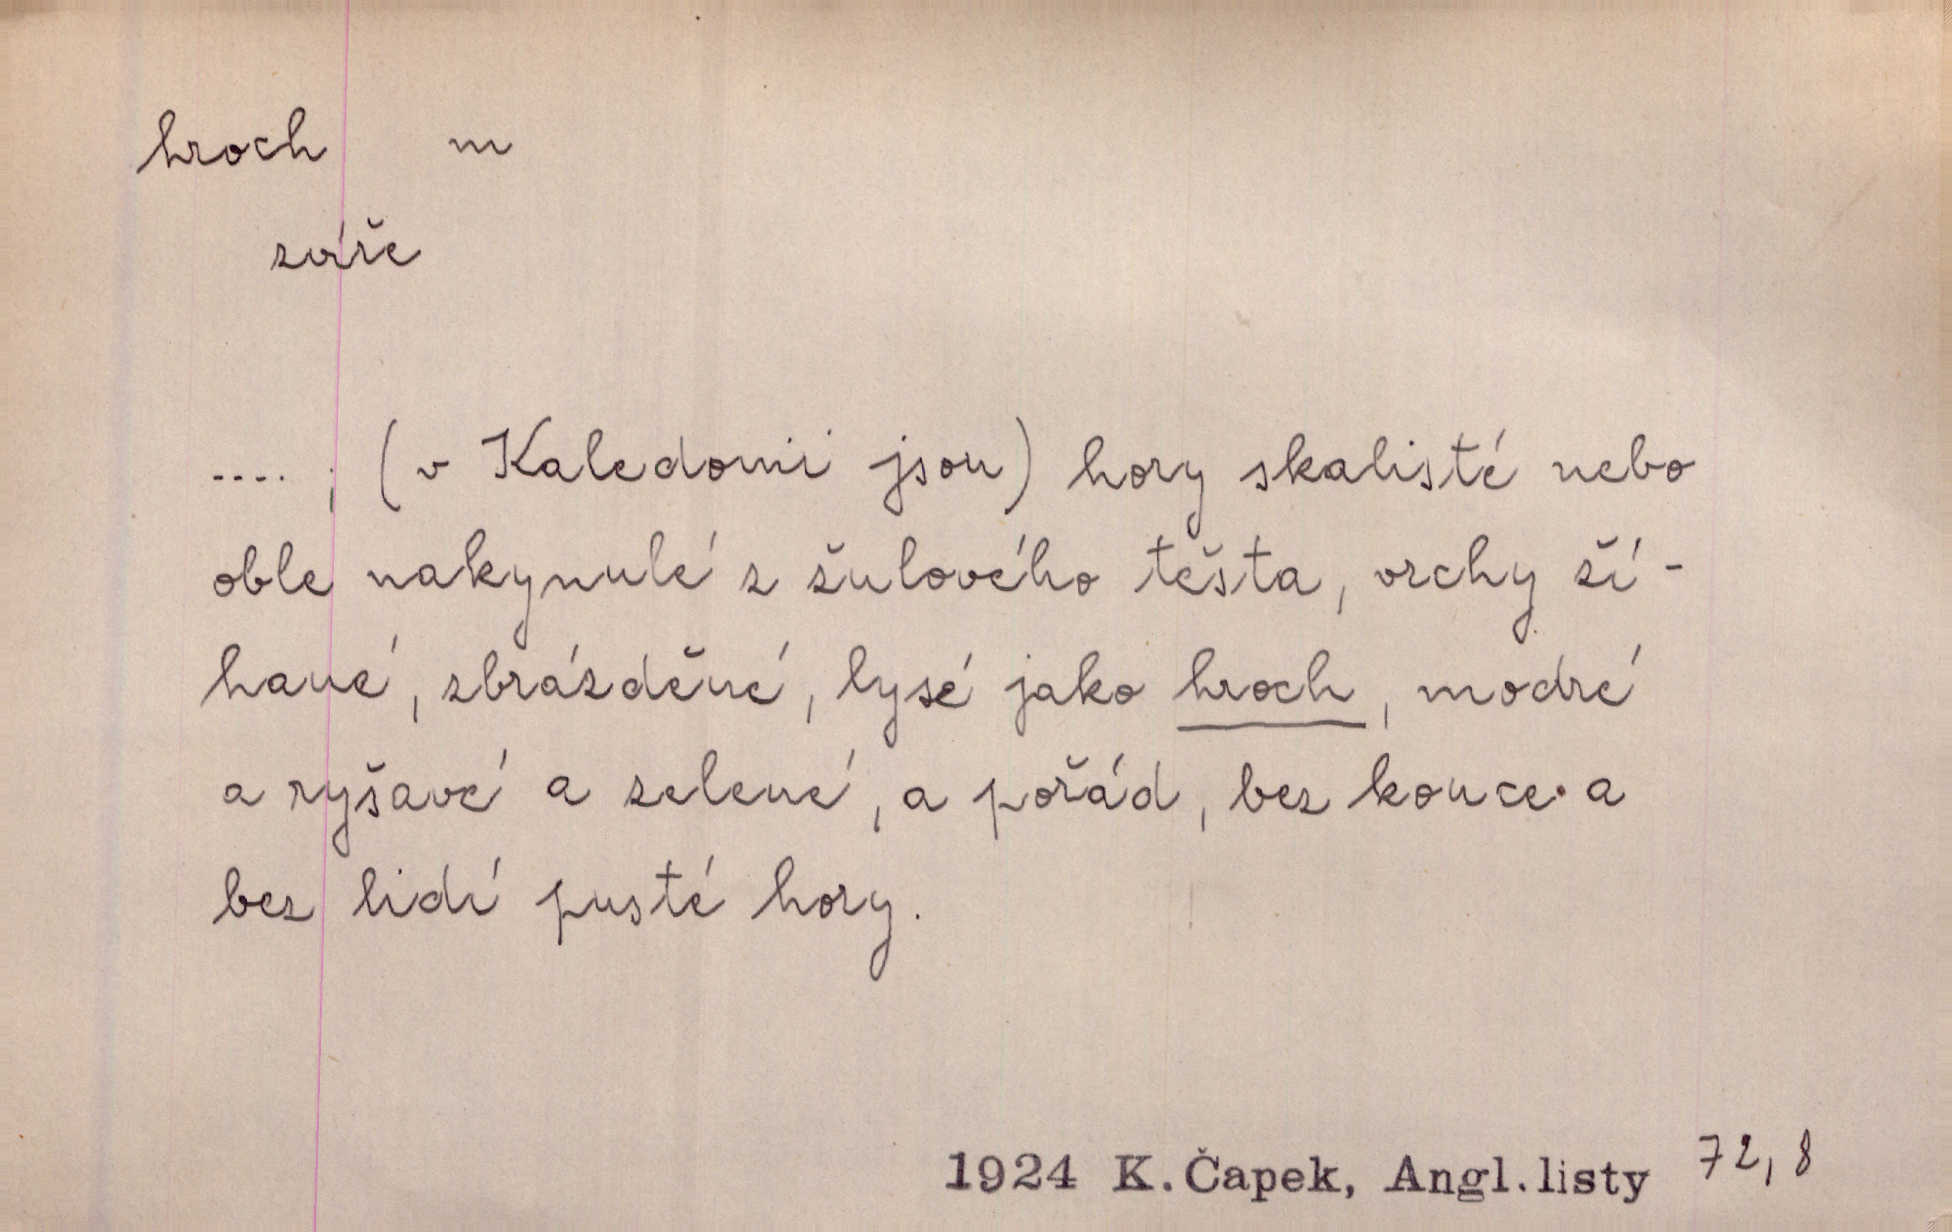 hroch m
zvíře
.... ; (v Kaledonii jsou) hory skalisté nebo
oble nakynulé z žulového těsta, vrchy ží-
hané, zbrázděné, lysé jako hroch, modré
a ryšavé a zelené, a pořád, bez konce a
bez lidí pusté hory.
1924 K. Čapek, Angl. listy 72,8